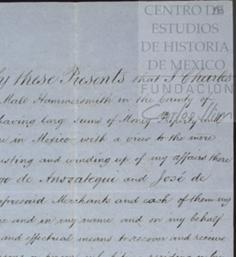 CENTRO DE
ESTUDIOS
DE HISTORIA
DE MEXICO
FUNDACIÓN
by these Presents that I Charles
Mall Hammersmith in the County of
having large Sums of Money
in Mexico with a view to the more
and winding up of my affairs there
go de Anzoategui and José de
aforesaid Merchants and each of them my
and in my name and on my behalf
and effectual means to recover and receive